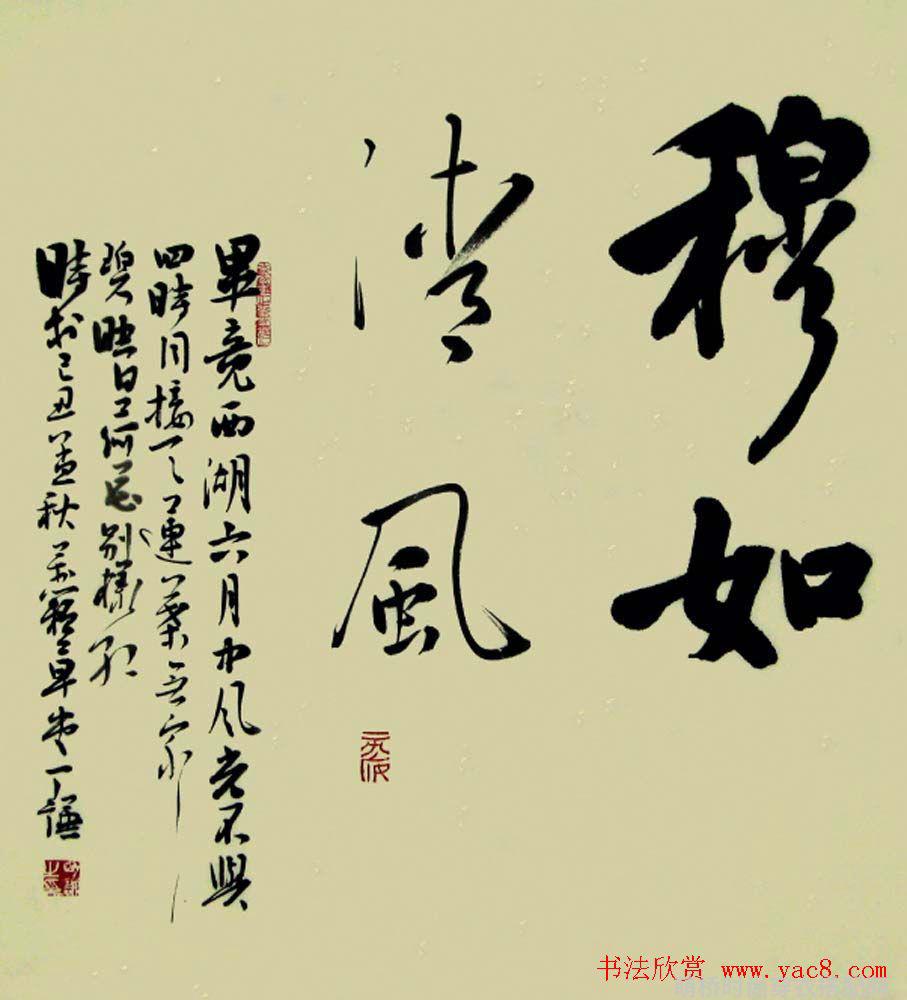 穆如
清風
畢竟西湖六月中风光不與
四時同接天蓮葉無窮
碧映日荷花別樣紅
時於己丑孟秋草堂丁謙
书法欣赏 www.yac8.com